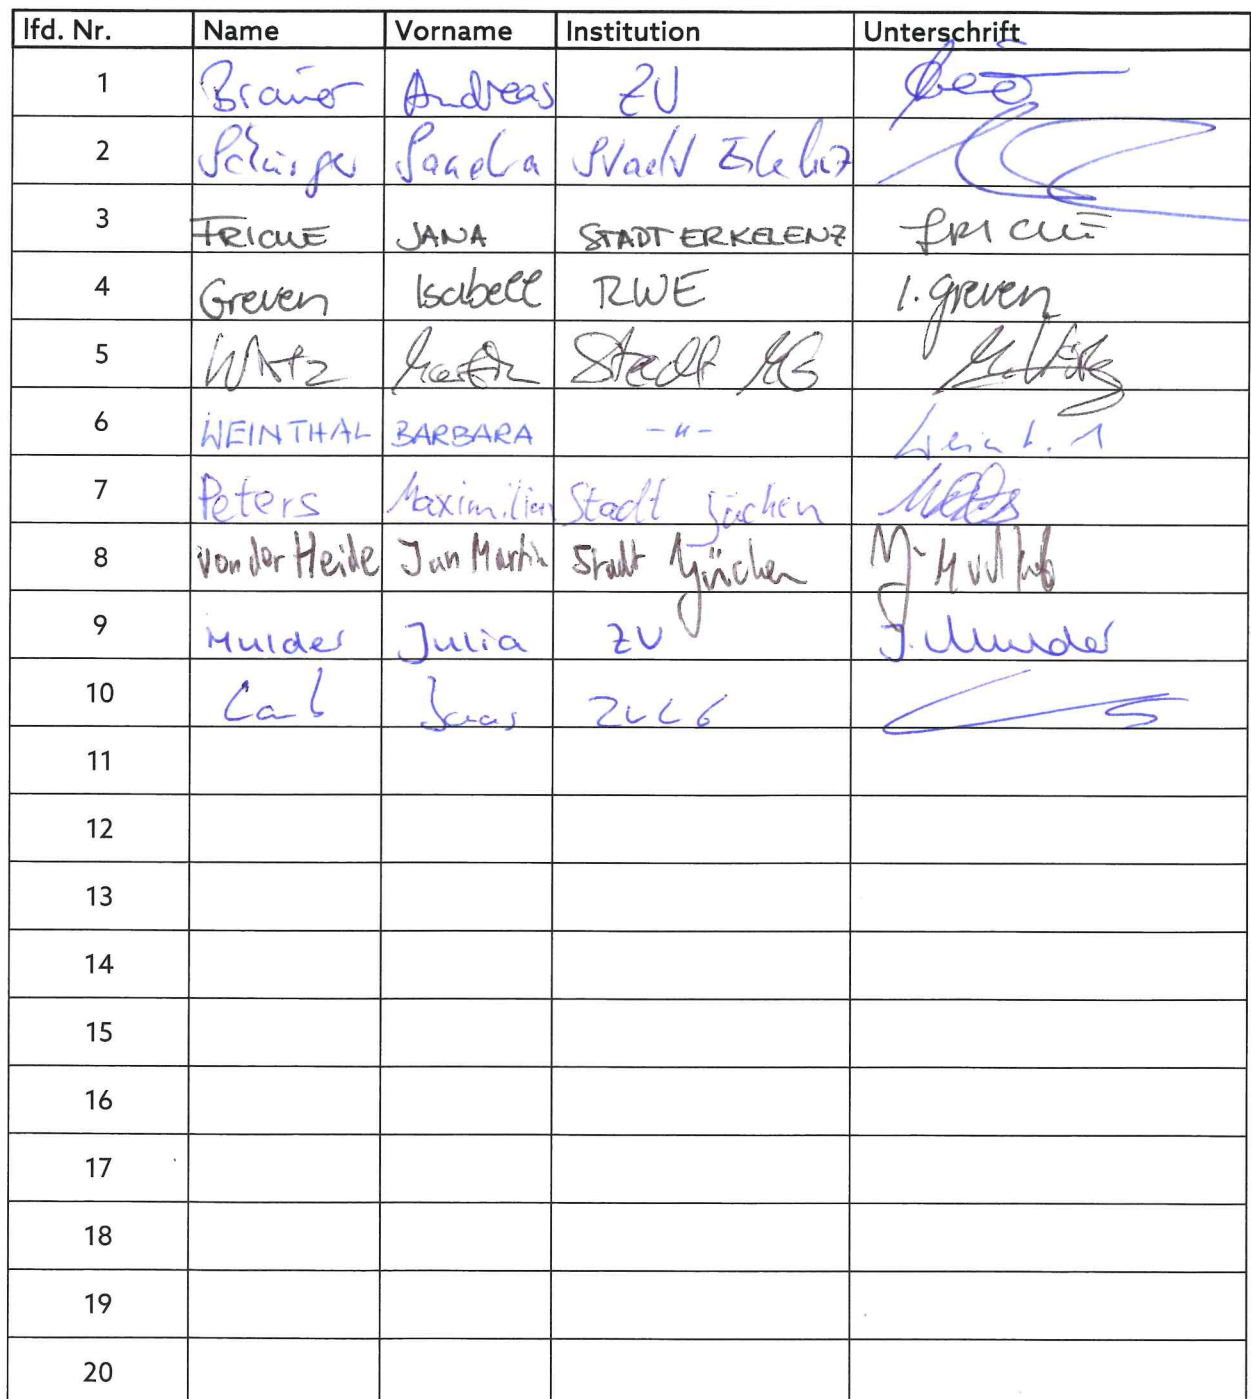 lfd. Nr. Name Vorname Institution Unterschrift
1 Brauner Andreas ZV
2 Schürger Sandra Stadt Erkelenz
3 FRICKE JANA STADT ERKELENZ FRICKE
4 Greven Isabell RWE I. Greven
5 Martin Stadt MG
6 WEINTHAL BARBARA -"- Weinth.
7 Peters Maximilian Stadt Jüchen
8 von der Heide Jan Martin Stadt Jüchen
9 Mulder Julia ZV J. Mulder
10
11
12
13
14
15
16
17
18
19
20